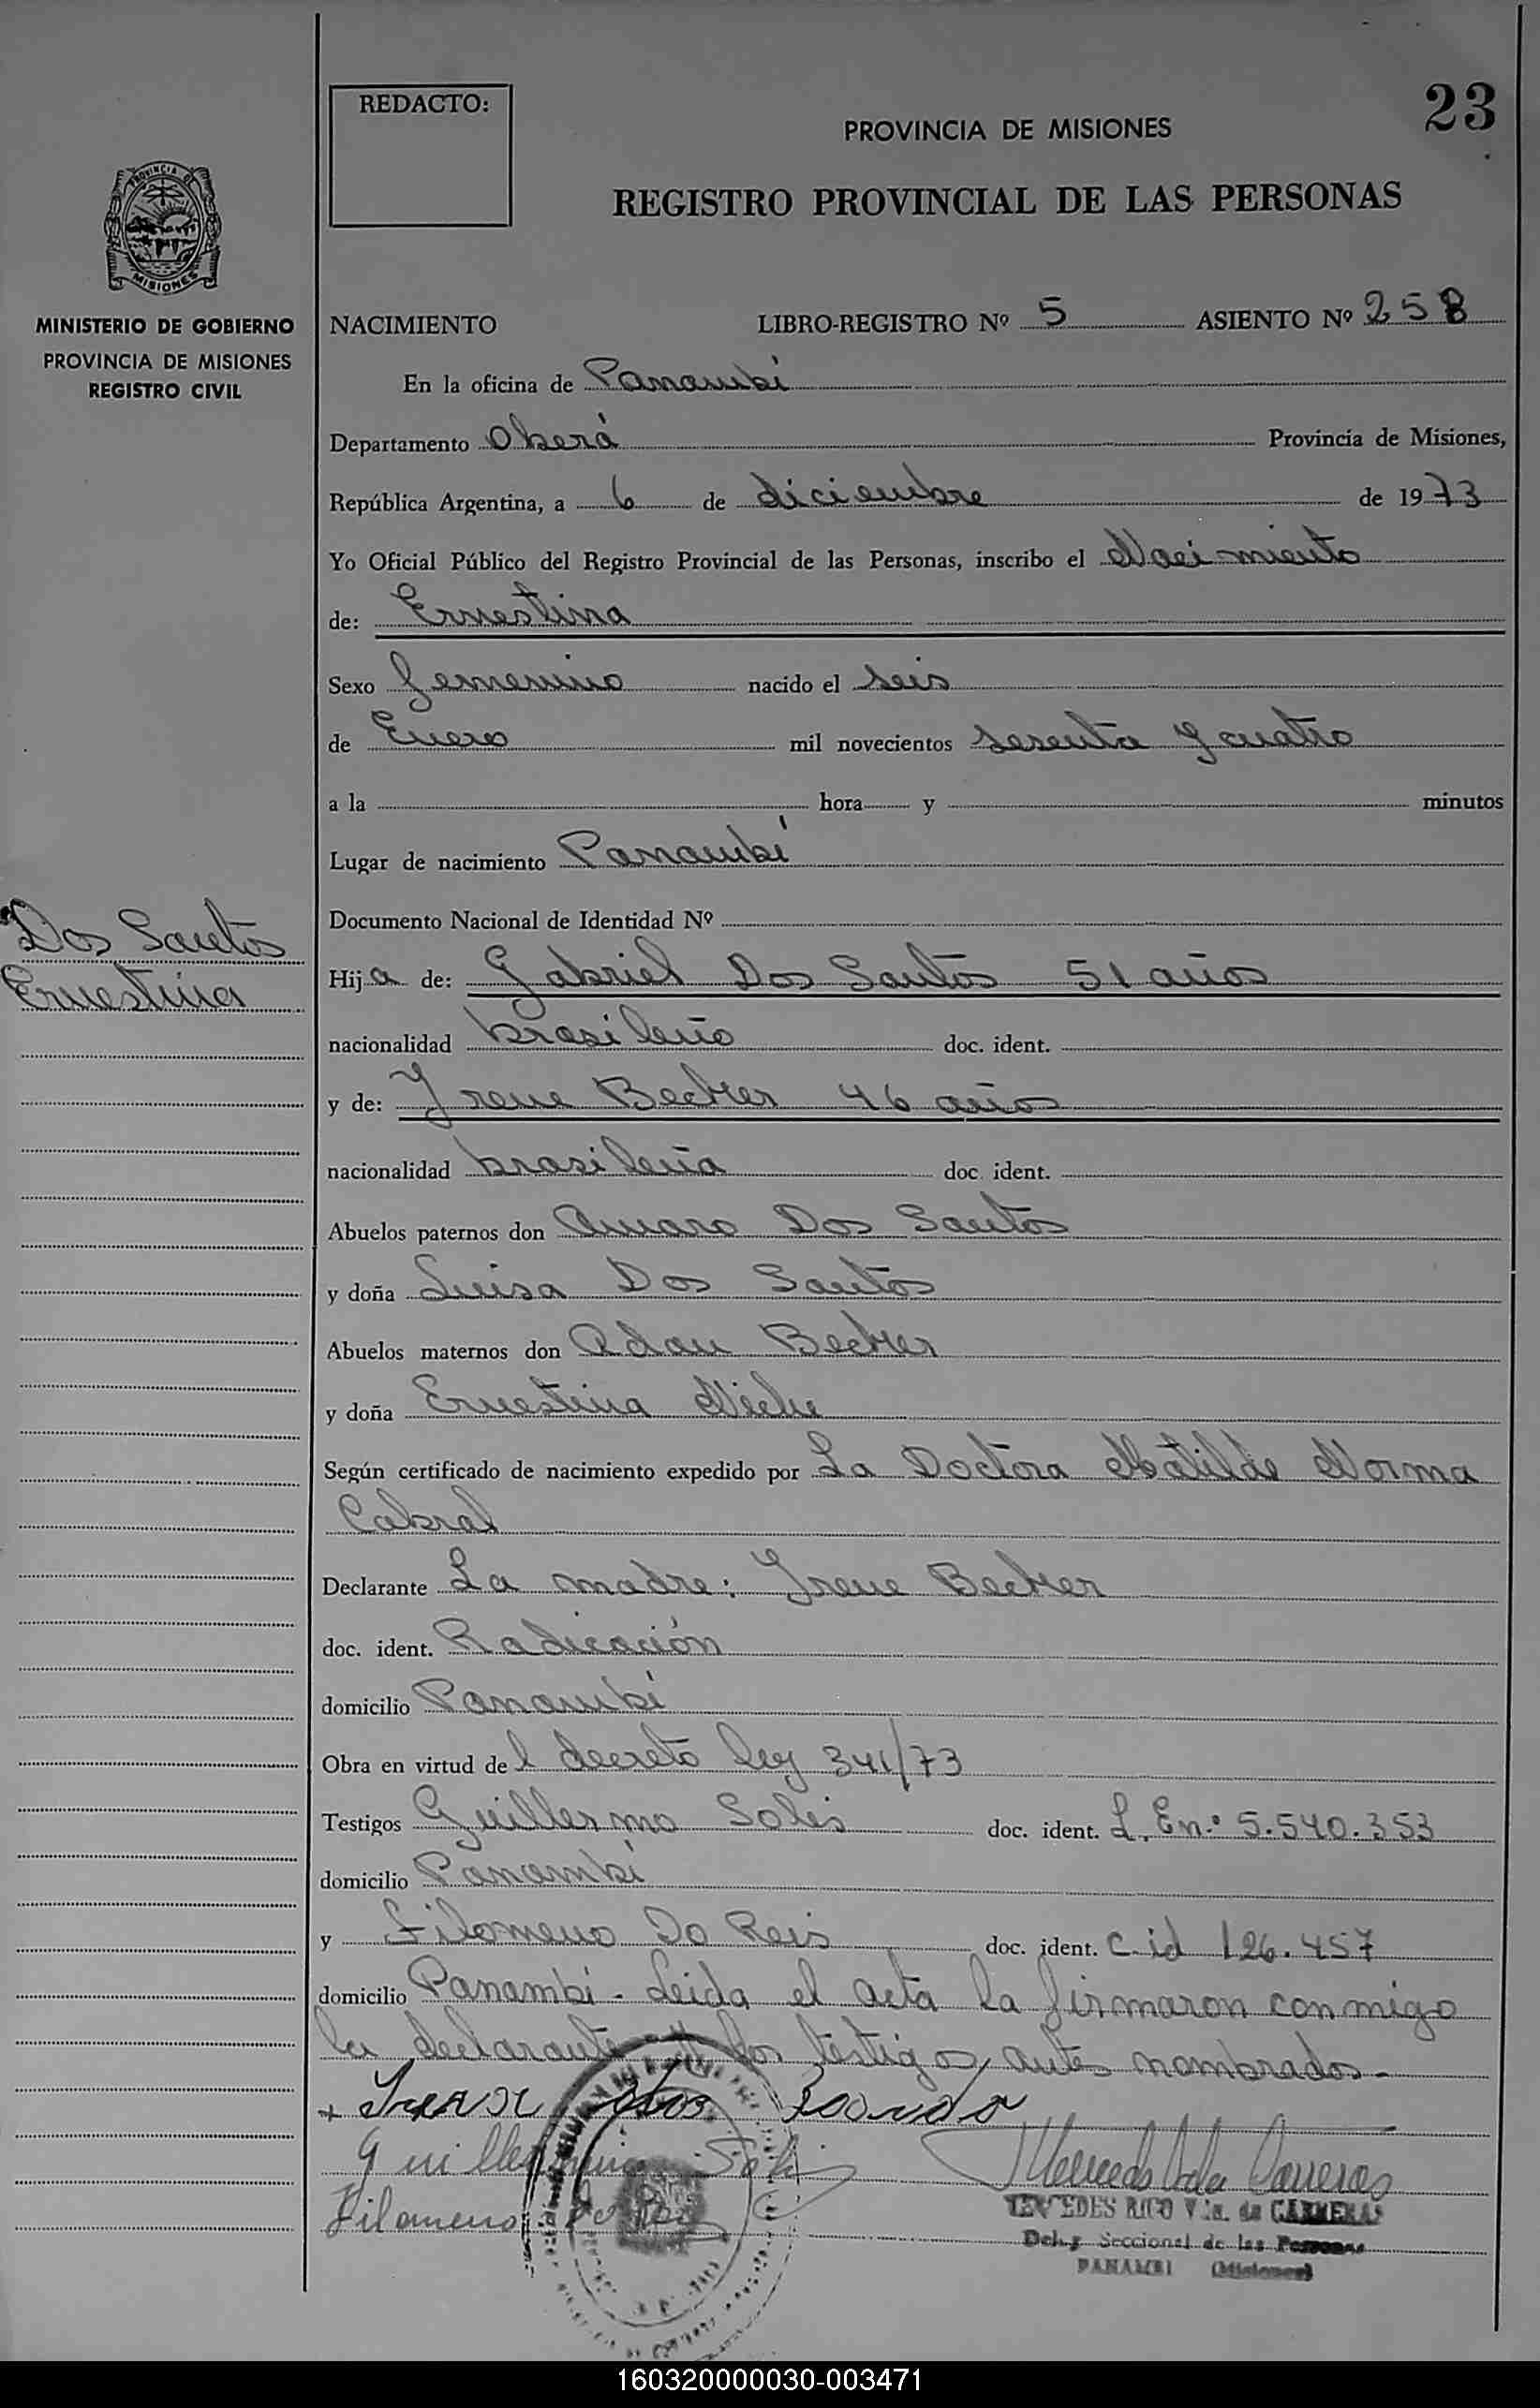 REDACTO:
23
PROVINCIA DE MISIONES
REGISTRO PROVINCIAL DE LAS PERSONAS
PROVINCIA DE
MISIONES
MINISTERIO DE GOBIERNO
PROVINCIA DE MISIONES
REGISTRO CIVIL
NACIMIENTO LIBRO-REGISTRO Nº 5 ASIENTO Nº 258
En la oficina de Panambí
Departamento Oberá Provincia de Misiones,
República Argentina, a 6 de diciembre de 1973
Yo Oficial Público del Registro Provincial de las Personas, inscribo el Nacimiento
de: Ernestina
Sexo femenino nacido el seis
de Enero mil novecientos sesenta y cuatro
a la hora y minutos
Lugar de nacimiento Panambí
Documento Nacional de Identidad Nº
Dos Santos
Ernestina
Hija de: Gabriel Dos Santos 51 años
nacionalidad brasileño doc. ident.
y de: Irene Becker 46 años
nacionalidad brasileña doc. ident.
Abuelos paternos don Amaro Dos Santos
y doña Luisa Dos Santos
Abuelos maternos don Adan Becker
y doña Ernestina
Según certificado de nacimiento expedido por La Doctora Matilde Norma
Cabral
Declarante La madre: Irene Becker
doc. ident. Radicación
domicilio Panambí
Obra en virtud del decreto ley 341/73
Testigos Guillermo Solis doc. ident. L. En.º 5.540.353
domicilio Panambí
y Filomeno Do Reis doc. ident. C. id 126.457
domicilio Panambí - Leida el acta la firmaron conmigo
la declarante y los testigos antes nombrados -
Guillermo Solis
Filomeno Do Reis
MERCEDES RICO Vda. de CARRERAS
Deleg. Seccional de las Personas
PANAMBI (Misiones)
160320000030-003471